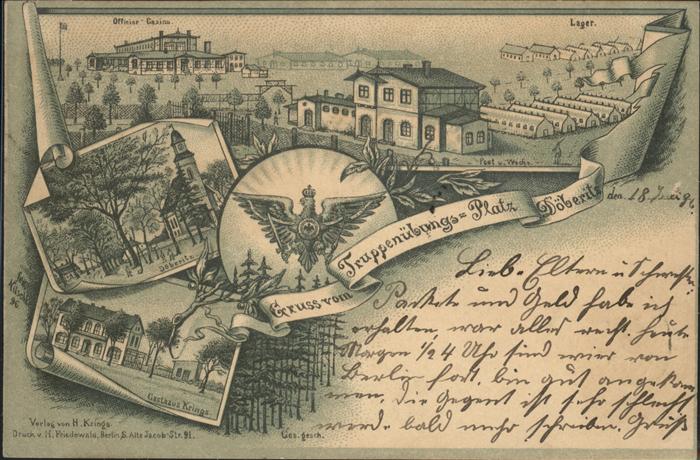 Officier-Casino.
Lager.
Post u. Wache.
Döberitz.
Gruss vom Truppenübungs=Platz Döberitz
den 18 Juni 96
Lieb. Eltern u Schwester
Packete und Geld habe ich
erhalten war alles recht. heute
Morgen 1/24 Uhr sind wier von
Berlin fort, bin gut angekom
men, die Gegent ist sehr schlecht
werde bald mehr schreiben. Gruß
Gasthaus Krings.
Verlag von H. Krings.
Druck v. H. Friedewald, Berlin S. Alte Jacob-Str. 91.
Ges. gesch.